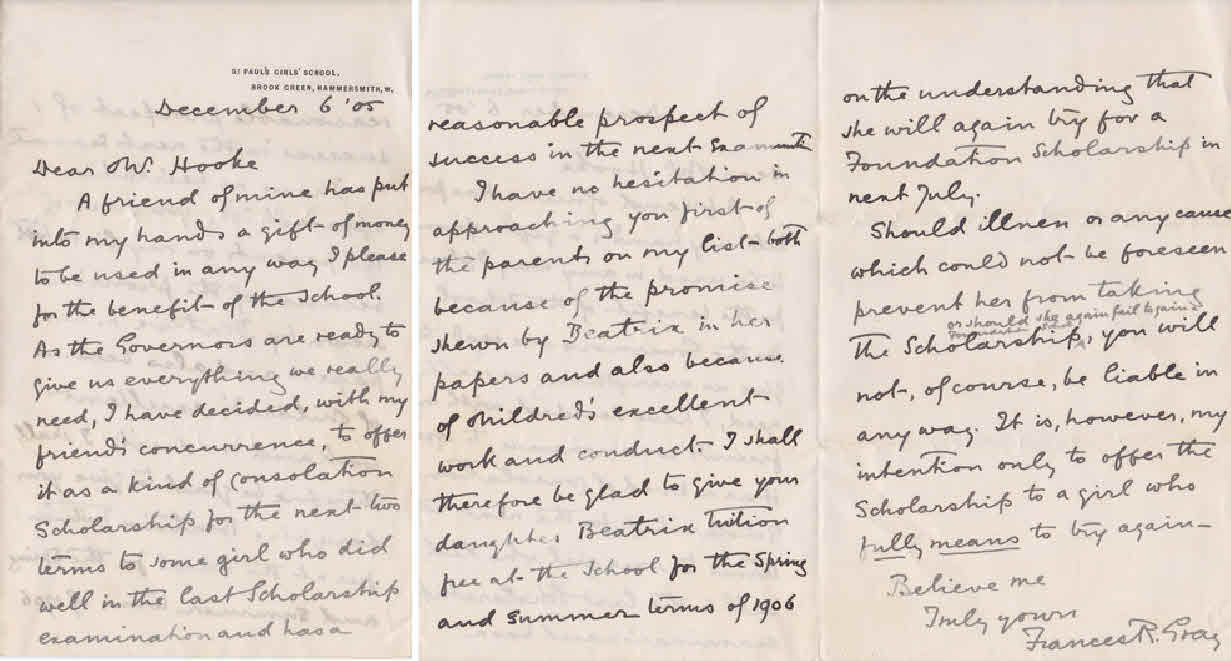 ST PAUL'S GIRLS' SCHOOL,
BROOK GREEN, HAMMERSMITH, W.
December 6 '05
Dear Mr. Hooke
A friend of mine has put
into my hands a gift of money
to be used in any way I please
for the benefit of the School.
As the Governors are ready to
give us everything we really
need, I have decided, with my
friend's concurrence, to offer
it as a kind of consolation
Scholarship for the next two
terms to some girl who did
well in the last Scholarship
examination and has a
reasonable prospect of
success in the next
I have no hesitation in
approaching you first of
the parents on my list both
because of the promise
shewn by Beatrix in her
papers and also because
of Mildred's excellent
work and conduct. I shall
therefore be glad to give your
daughter Beatrix tuition
free at the School for the Spring
and Summer terms of 1906
on the understanding that
she will again try for a
Foundation Scholarship in
next July.
Should illness or any cause
which could not be foreseen
prevent her from taking
or should she again fail to gain a
the Scholarship, you will
not, of course, be liable in
any way. It is, however, my
intention only to offer the
Scholarship to a girl who
fully means to try again—
Believe me
Truly yours
Frances R. Gray